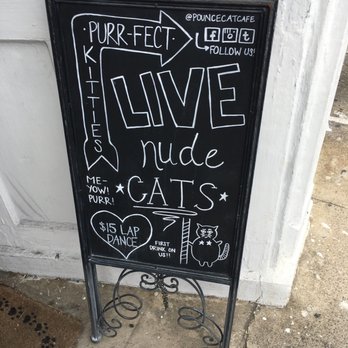 PURR-FECT
KITTIES
@POUNCECATCAFE
f t
FOLLOW US!
LIVE
nude
CATS
ME-
YOW!
PURR!
$15 LAP
DANCE
FIRST
DRINK ON
US!!